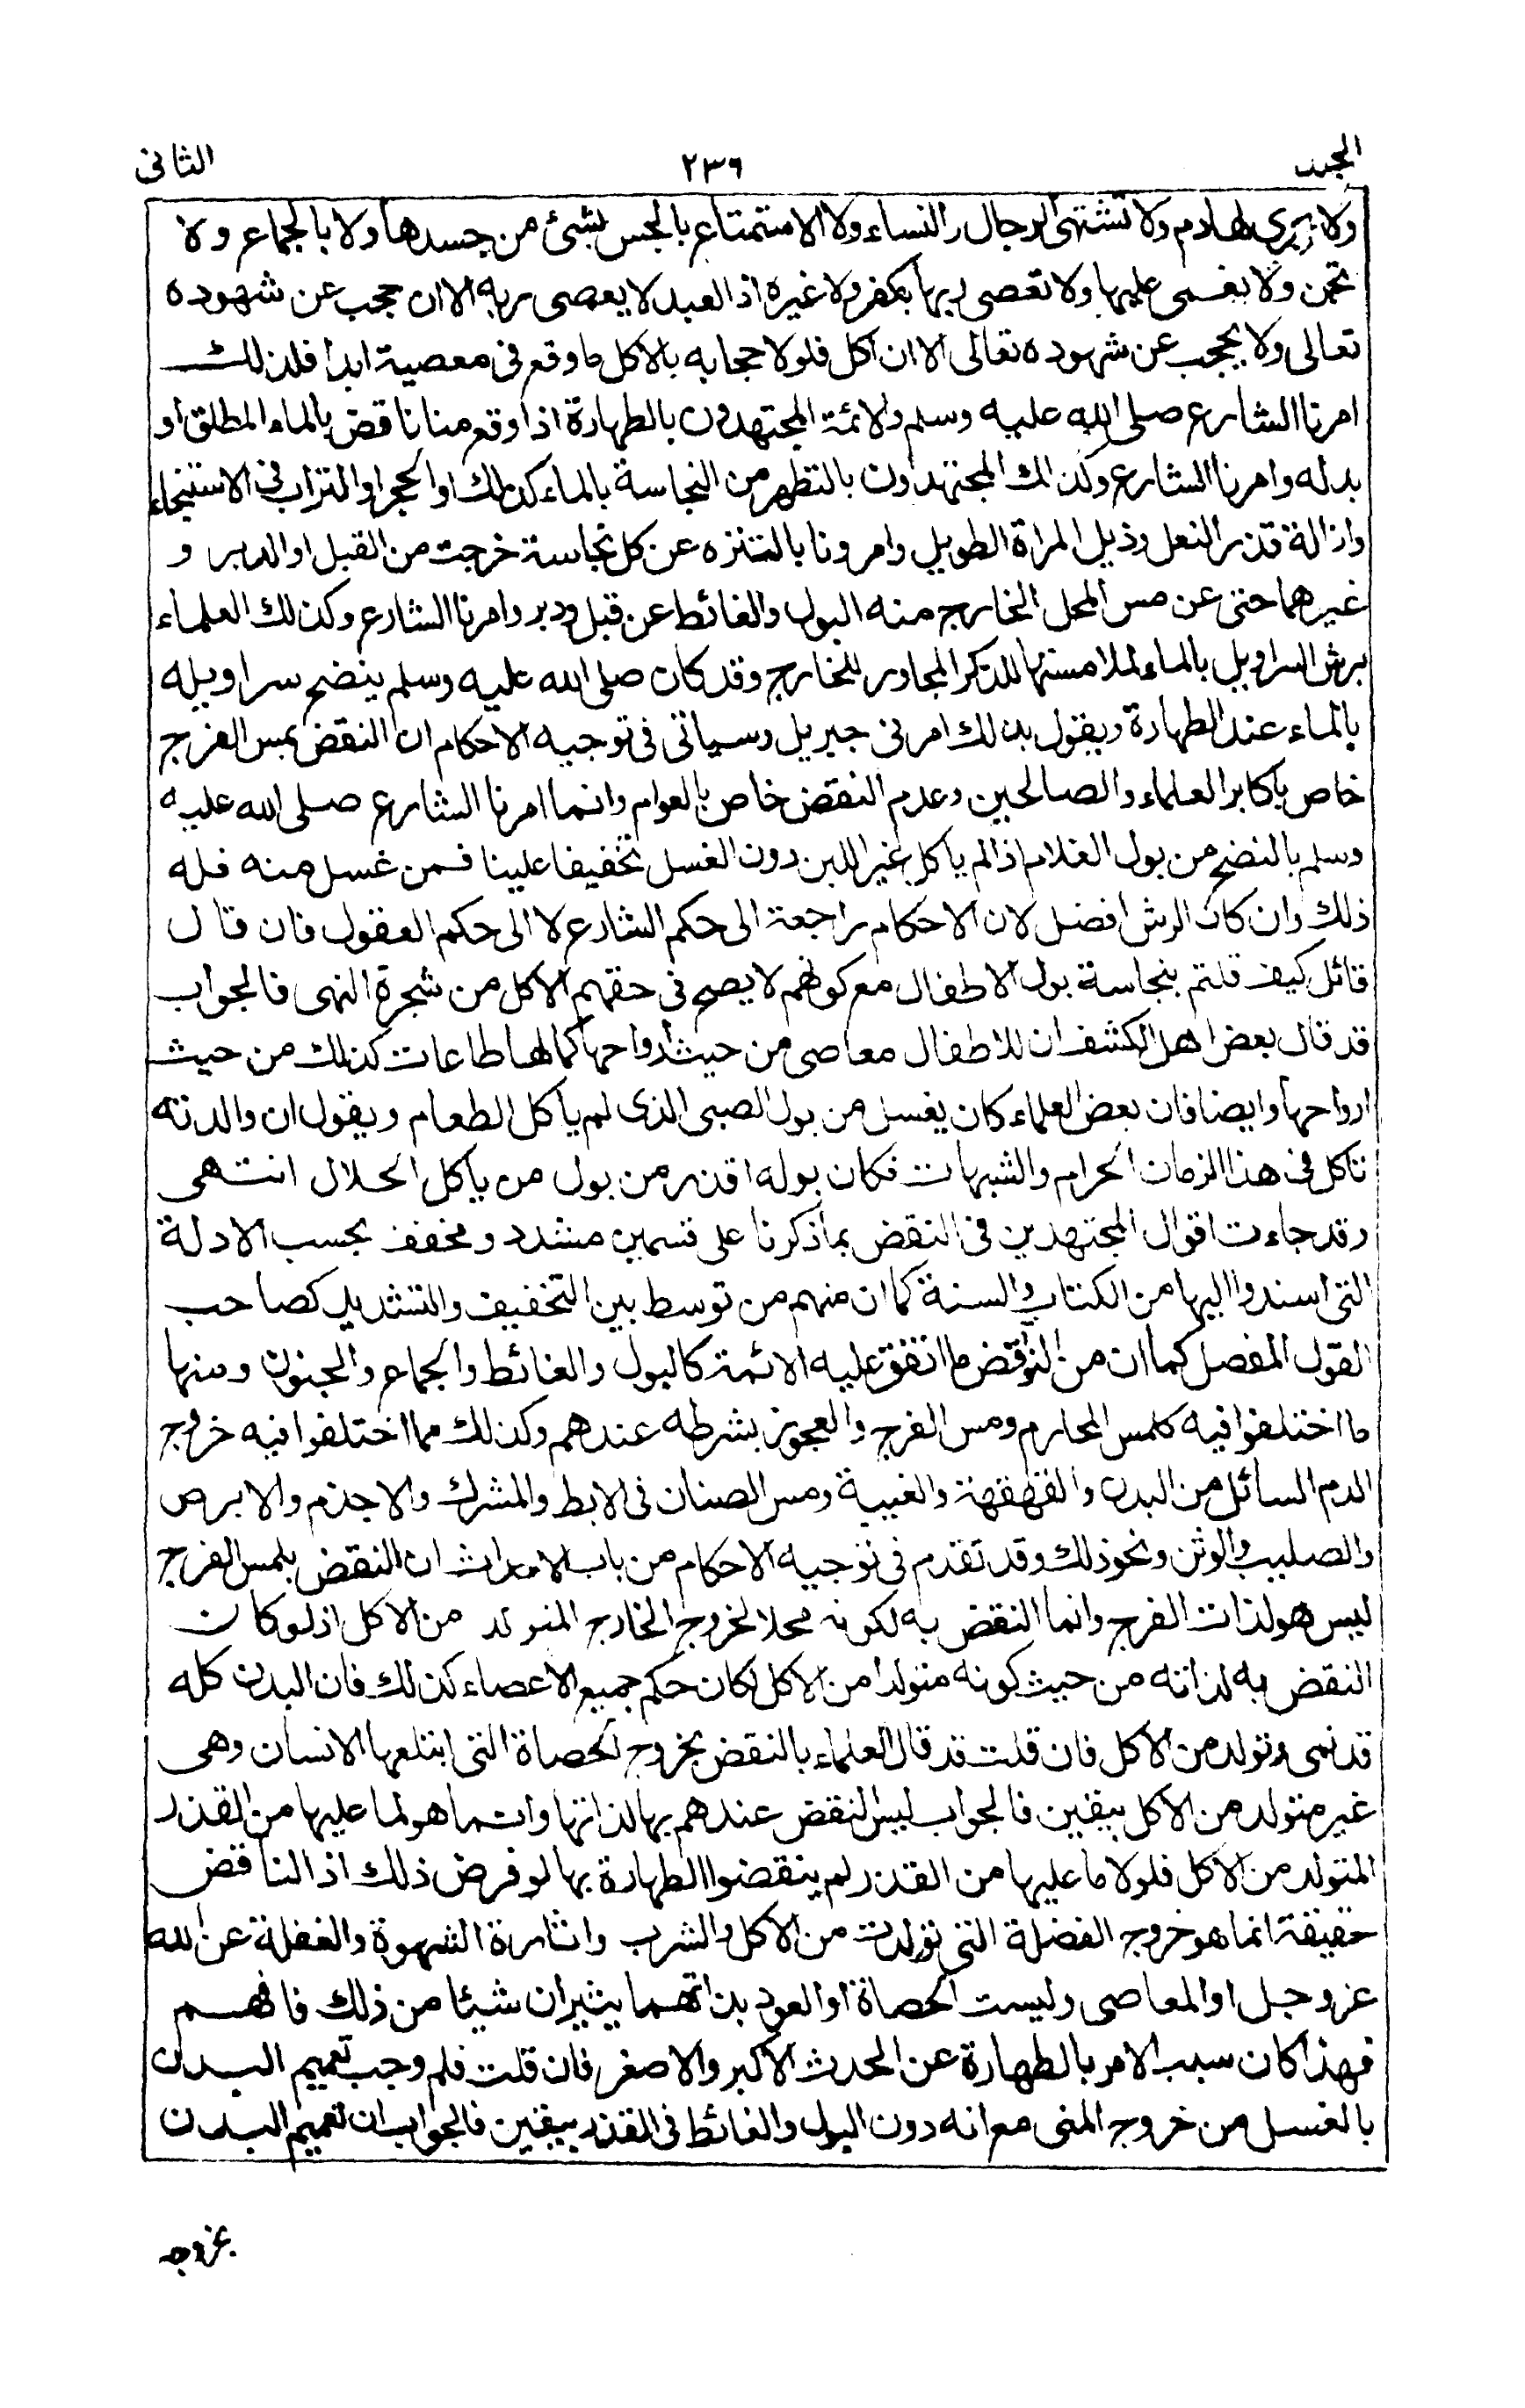 الجلد ٢٣٦ الثانى
ولا يجرى لها دم ولا تشتهى الرجال والنساء ولا الاستمتاع بالجس بشئ من جسدها ولا بالجماع ولا
تجن ولا يغمى عليها ولا تعصى ربها بكفر ولا غيره اذ العبد لا يعصى ربه الا ان حجب عن شهوده
تعالى ولا يحجب عن شهوده تعالى الا ان اكل فلولا حجابه بالاكل ما وقع فى معصية ابدا فلذلك
امرنا الشارع صلى الله عليه وسلم ولائمة المجتهدون بالطهارة اذا وقع منا ناقض بالماء المطلق او
بدله وامرنا الشارع وكذلك المجتهدون بالتطهر من النجاسة بالماء كذلك او الحجر او التراب فى الاستنجاء
وازالة قذر النعل وذيل المراة الطويل وامرونا بالتنزه عن كل نجاسة خرجت من القبل او الدبر و
غيرهما حتى عن مس المحل الخارج منه البول والغائط عن قبل ودبر وامرنا الشارع وكذلك العلماء
برش السراويل بالماء لملامستها للذكر المجاور للخارج وقد كان صلى الله عليه وسلم ينضح سراويله
بالماء عند الطهارة ويقول بذلك امرنى جبريل وسياتى فى توجيه الاحكام ان النقض بمس الفرج
خاص باكابر العلماء والصالحين وعدم النقض خاص بالعوام وانما امرنا الشارع صلى الله عليه
وسلم بالنضح من بول الغلام اذا لم ياكل غير اللبن دون الغسل تخفيفا علينا فمن غسل منه فله
ذلك وان كان الرش افضل لان الاحكام راجعة الى حكم الشارع لا الى حكم العقول فان قال
قائل كيف قلتم بنجاسة بول الاطفال مع كونهم لا يصح فى حقهم الاكل من شجرة النهى فالجواب
قد قال بعض اهل الكشف ان للاطفال معاصى من حيث ارواحها كما لها طاعات كذلك من حيث
ارواحها وايضا فان بعض العلماء كان يغسل من بول الصبى الذى لم ياكل الطعام ويقول ان والدته
تاكل فى هذا الزمان الحرام والشبهات فكان بوله اقذر من بول من ياكل الحلال انتهى
وقد جاءت اقوال المجتهدين فى النقض بما ذكرنا على قسمين مشدد ومخفف بحسب الادلة
التى اسندوا اليها من الكتاب والسنة كما ان منهم من توسط بين التخفيف والتشديد كصاحب
القول المفصل كما ان من النواقض ما اتفق عليه الائمة كالبول والغائط والجماع والجنون ومنها
ما اختلفوا فيه كلمس المحارم ومس الفرج والعجوز بشرطه عندهم وكذلك مما اختلفوا فيه خروج
الدم السائل من البدن والقهقهة والغيبة ومس الصنان فى الابط والمشرك والاجذم والابرص
والصليب والوثن ونحو ذلك وقد تقدم فى توجيه الاحكام من باب الاحداث ان النقض بلمس الفرج
ليس هو لذات الفرج وانما النقض به لكونه محلا لخروج الخارج المتولد من الاكل اذ لو كان
النقض به لذاته من حيث كونه متولدا من الاكل لكان حكم جميع الاعضاء كذلك فان البدن كله
قد نمى وتولد من الاكل فان قلت قد قال العلماء بالنقض بخروج الحصاة التى ابتلعها الانسان وهى
غير متولد من الاكل بيقين فالجواب ليس النقض عندهم بها لذاتها وانما هو لما عليها من القذر
المتولد من الاكل فلولا ما عليها من القذر لم ينقضوا الطهارة بها لو فرض ذلك اذ الناقض
حقيقة انما هو خروج الفضلة التى تولدت من الاكل والشرب واثارة الشهوة والغفلة عن الله
عزوجل او المعاصى وليست الحصاة او العود بذاتهما يثيران شيئا من ذلك فافهم
فهذا كان سبب الامر بالطهارة عن الحدث الاكبر والاصغر فان قلت فلم وجب تعميم البدن
بالغسل من خروج المنى مع انه دون البول والغائط فى القذر بيقين فالجواب ان تعميم البدن